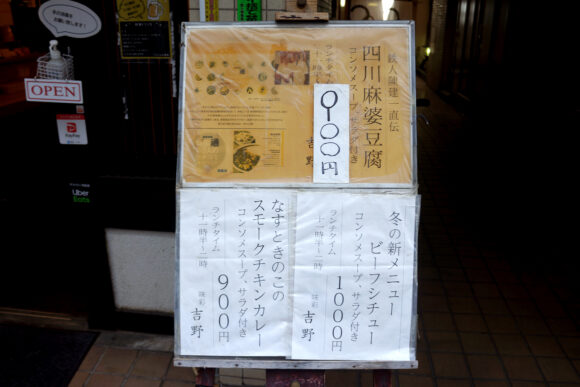 OPEN
PayPay
Uber
Eats
鉄人陳建一直伝
四川麻婆豆腐
コンソメスープ、サラダ付き
ランチタイム
900円
冬の新メニュー
ビーフシチュー
コンソメスープ、サラダ付き
ランチタイム
十一時半〜二時
1000円
味彩 吉野
なすときのこの
スモークチキンカレー
コンソメスープ、サラダ付き
ランチタイム
十一時半〜二時
900円
味彩 吉野